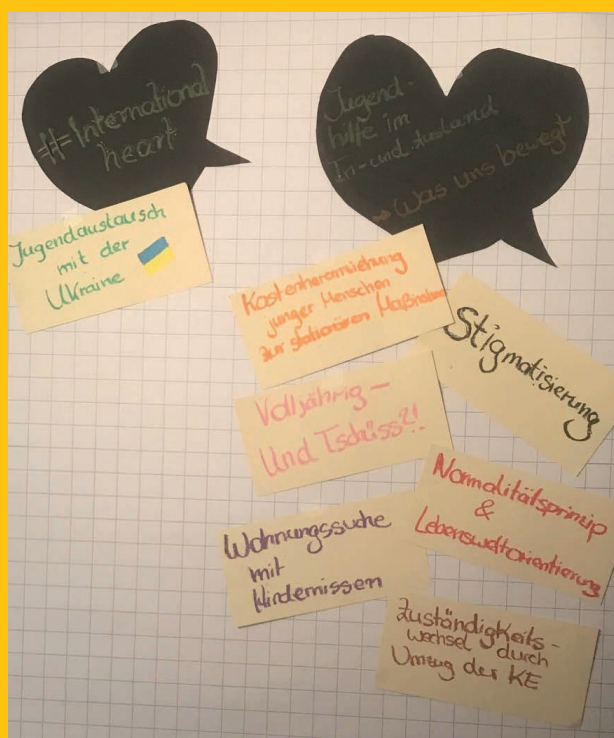 #International
heart
Jugendaustausch
mit der
Ukraine
Jugend-
hilfe im
In-und Ausland
→ Was uns bewegt
Kostenheranziehung
junger Menschen
zur stationären Maßnahme
Stigmatisierung
Volljährig –
Und Tschüss?!
Normalitätsprinzip
&
Lebensweltorientierung
Wohnungssuche
mit
Hindernissen
Zuständigkeits-
wechsel durch
Umzug der KE